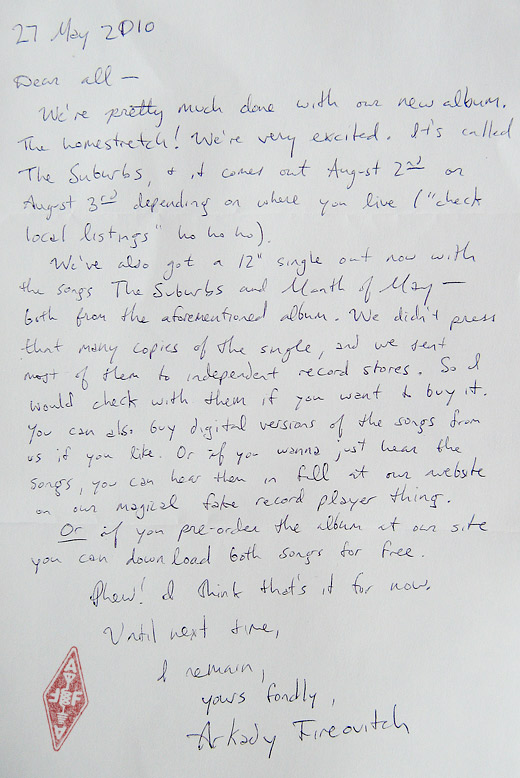 27 May 2010
Dear all —
We're pretty much done with our new album.
The homestretch! We're very excited. It's called
The Suburbs, + it comes out August 2nd or
August 3rd depending on where you live ("check
local listings" ho ho ho).
We've also got a 12" single out now with
the songs The Suburbs and Month of May —
both from the aforementioned album. We didn't press
that many copies of the single, and we sent
most of them to independent record stores. So I
would check with them if you want to buy it.
You can also buy digital versions of the songs from
us if you like. Or if you wanna just hear the
songs, you can hear them in full at our website
on our magical fake record player thing.
Or if you pre-order the album at our site
you can download both songs for free.
Phew! I think that's it for now.
Until next time,
I remain,
yours fondly,
Arkady Fireovitch
A
F